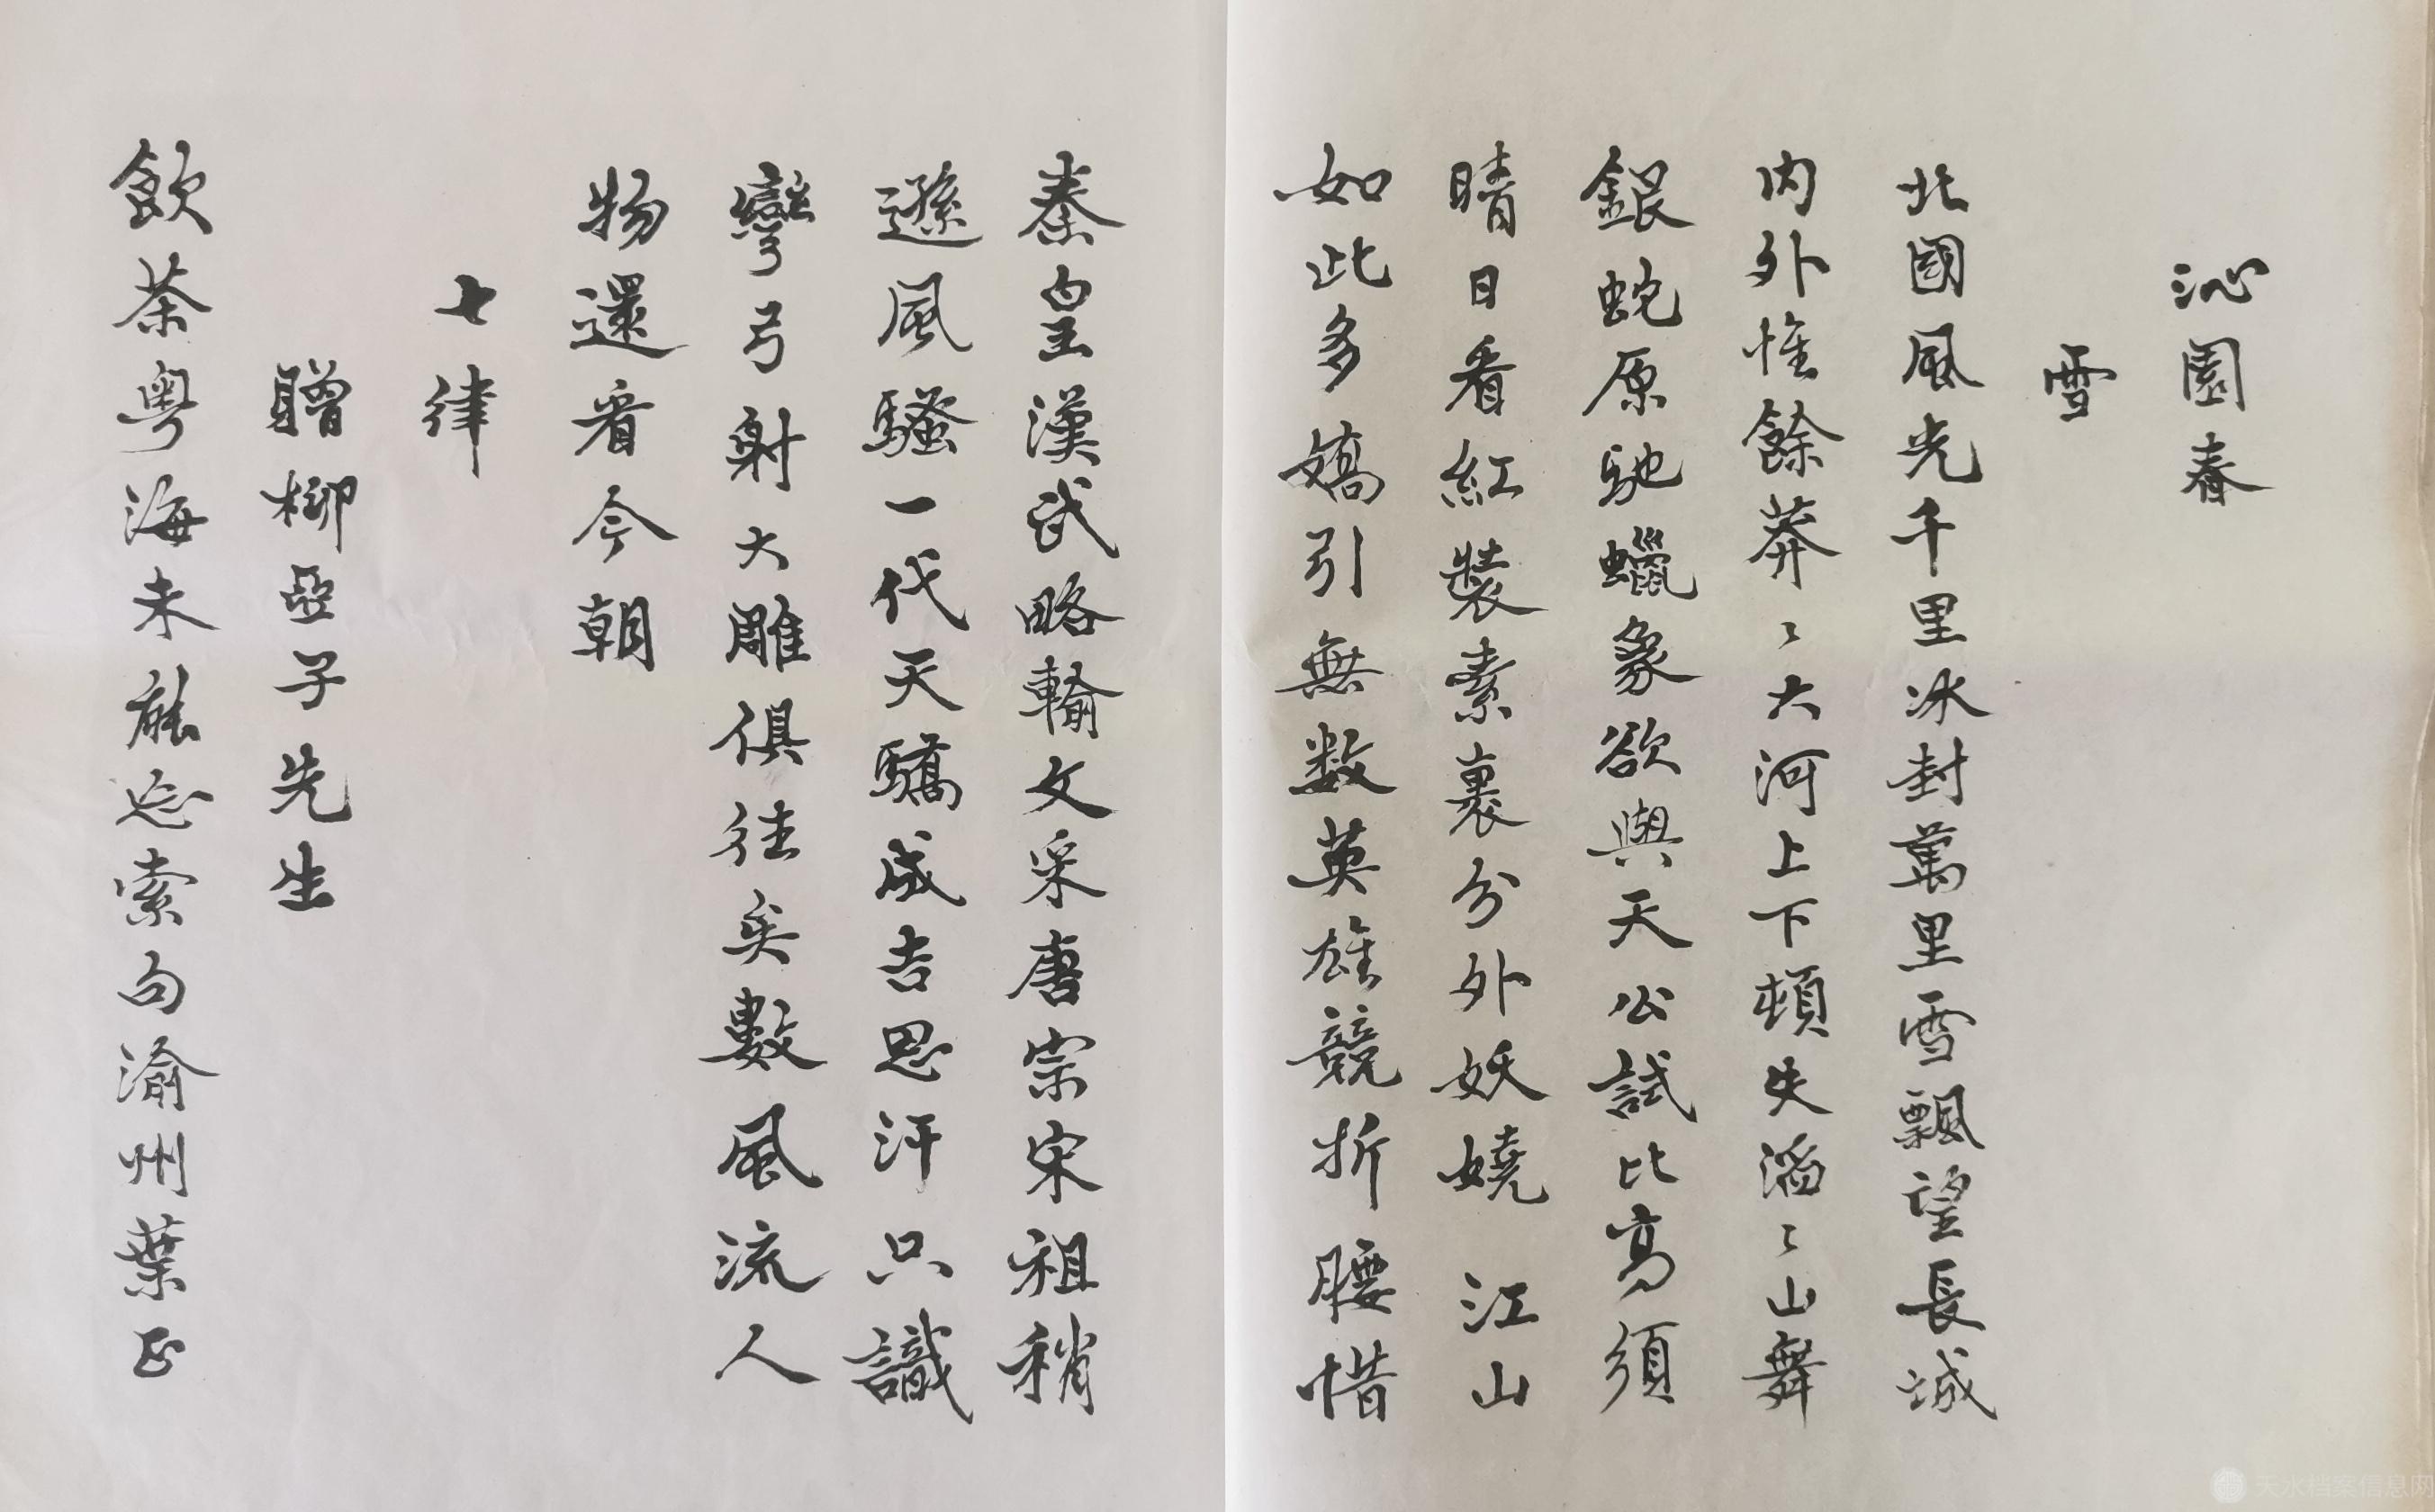 沁園春
雪
北國風光千里冰封萬里雪飄望長城
内外惟餘莽〻大河上下頓失滔〻山舞
銀蛇原馳蠟象欲與天公試比高須
晴日看紅裝素裹分外妖嬈 江山
如此多嬌引無数英雄競折腰惜
秦皇漢武略輸文采唐宗宋祖稍
遜風騷一代天驕成吉思汗只識
彎弓射大雕俱往矣數風流人
物還看今朝
七律
贈柳亞子先生
飲茶粵海未能忘索句渝州葉正
天水档案信息网